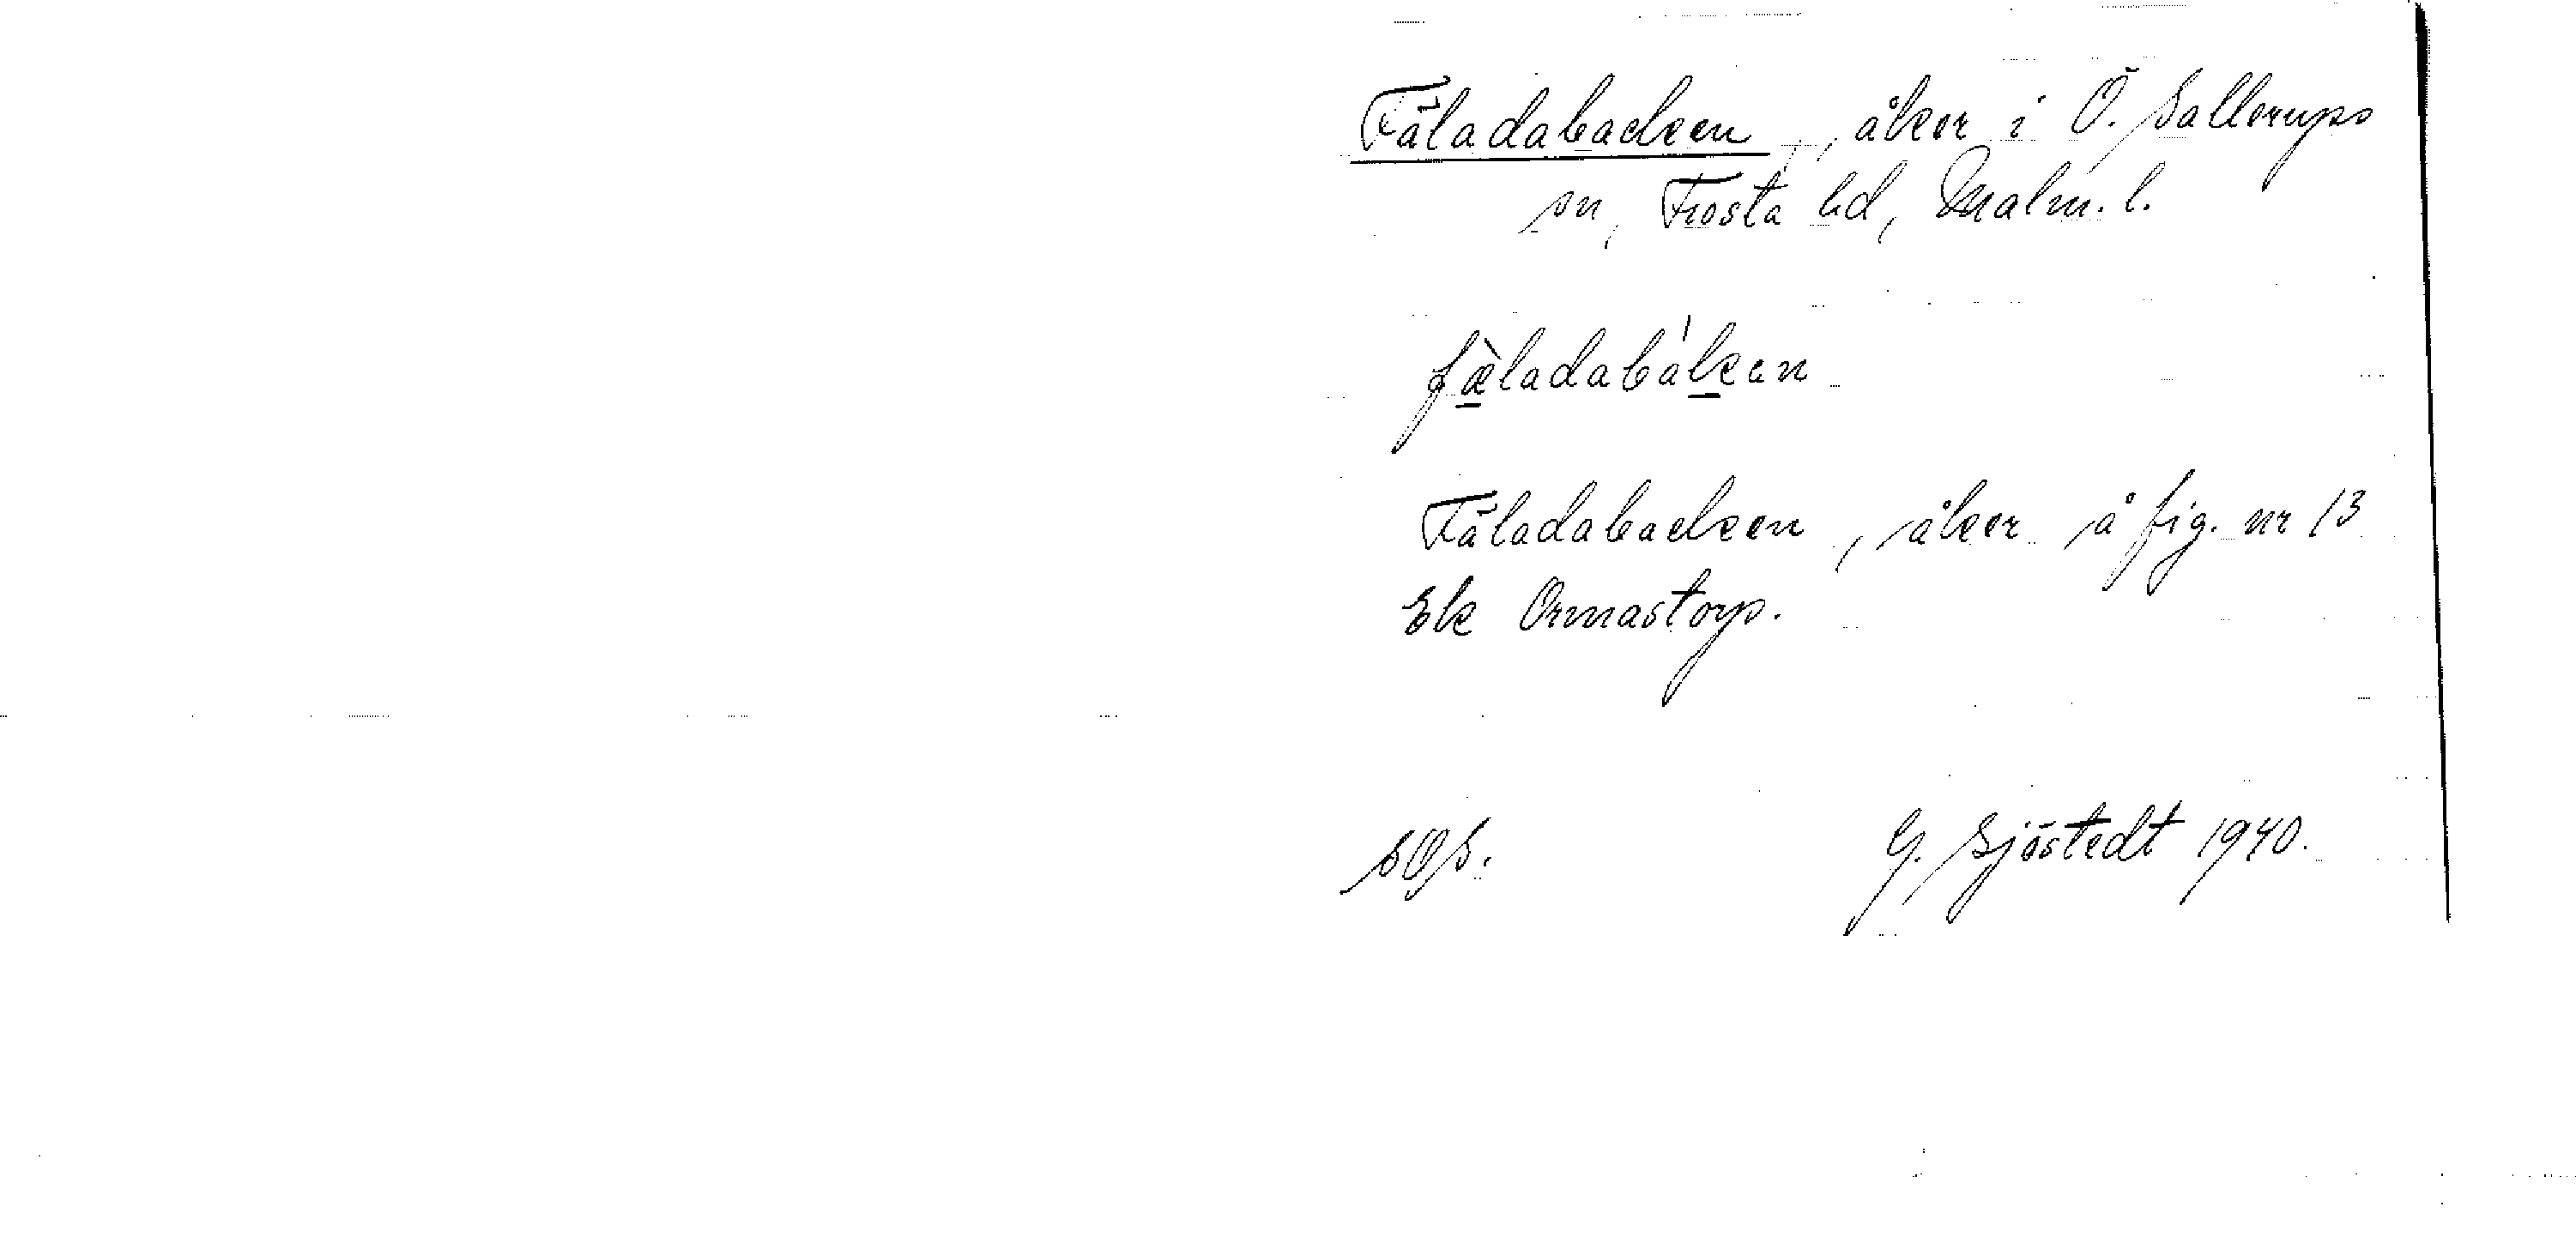 Fäladabacken, åker i Ö. Sallerups
sn, Frosta hd, Malm. l.
fæ̀ladabákan
Fäladabacken, åker å fig. nr 13
Ek Ormastorp.
sOs.
G. Sjöstedt 1940.